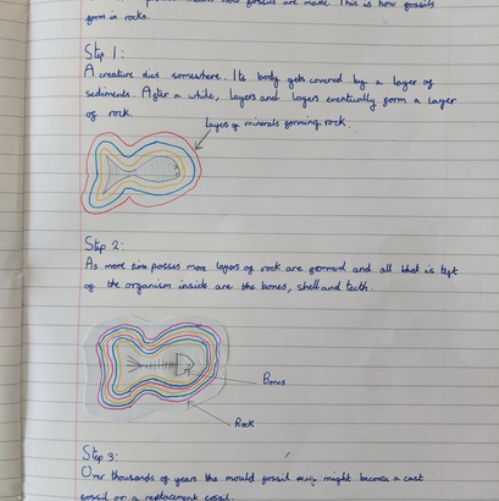 means how fossils are made. This is how fossils
form in rocks.
Step 1:
A creature dies somewhere. Its body gets covered by a layer of
sediments. After a while, layers and layers eventually form a layer
of rock.
Layers of minerals forming rock.
Step 2:
As more time passes more layers of rock are formed and all that is left
of the organism inside are the bones, shell and teeth.
Bones
Rock
Step 3:
Over thousands of years the mould fossil might become a cast
fossil or a replacement fossil.